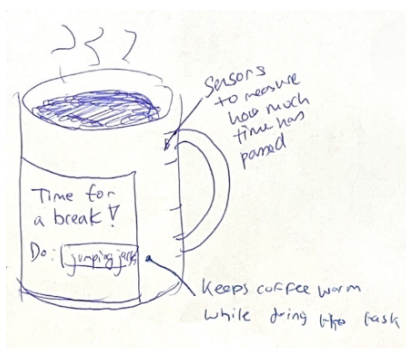 Sensors
to measure
how much
time has
passed
Time for
a break!
Do: jumping jacks
Keeps coffee warm
while doing the task